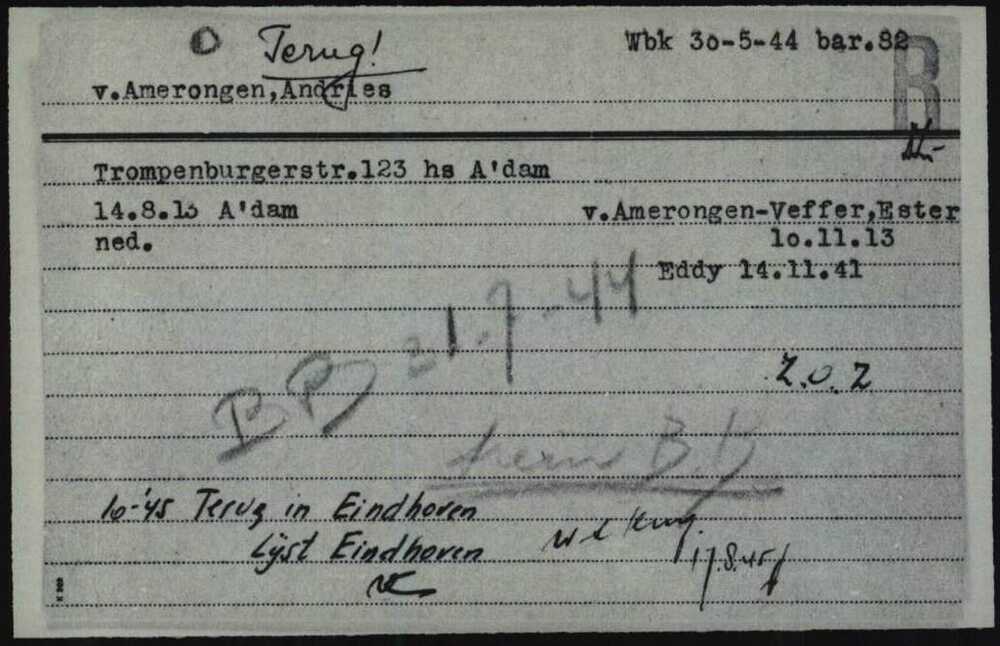 O Terug! Wbk 3o-5-44 bar.82
B
v.Amerongen,Andries
Trompenburgerstr.123 hs A'dam
14.8.13 A'dam v.Amerongen-Veffer,Ester
ned. 1o.11.13
Eddy 14.11.41
31-7-44
Z.O.Z
BP
B.B
6-'45 Terug in Eindhoven
Lijst Eindhoven
17.8.45